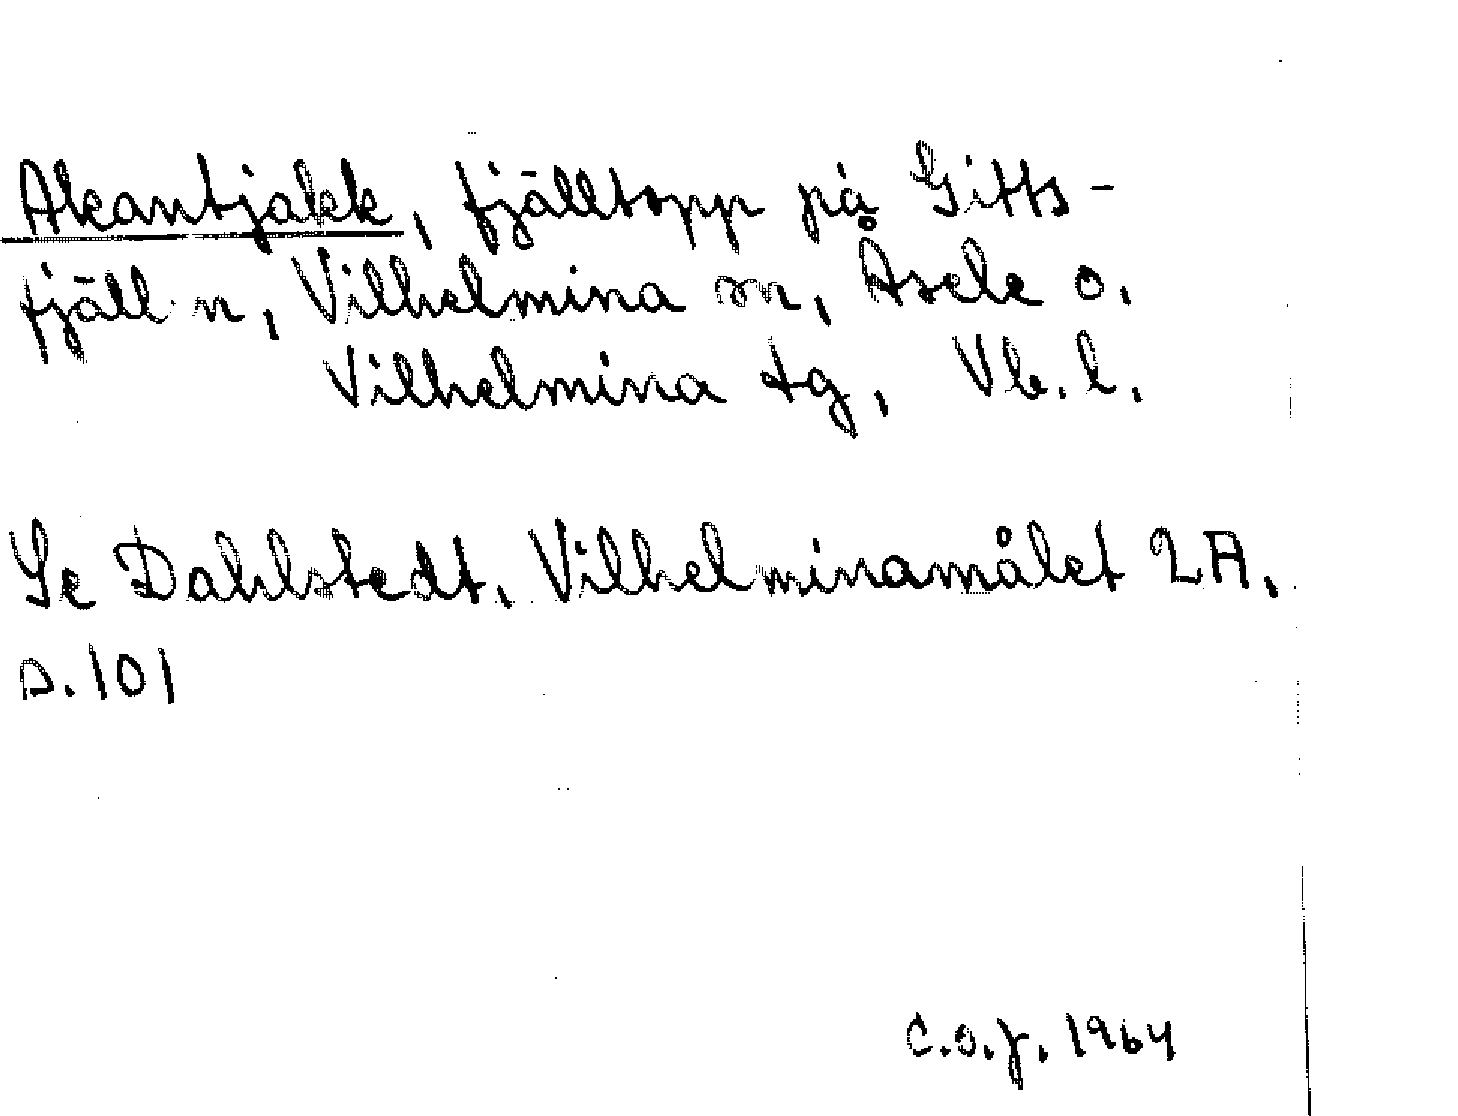 Akantjakk, fjälltopp på Gitts-
fjäll n, Vilhelmina sn, Åsele o.
Vilhelmina tg, Vb. l.
Se Dahlstedt. Vilhelminamålet 2A.
s. 101
C.O.J. 1964